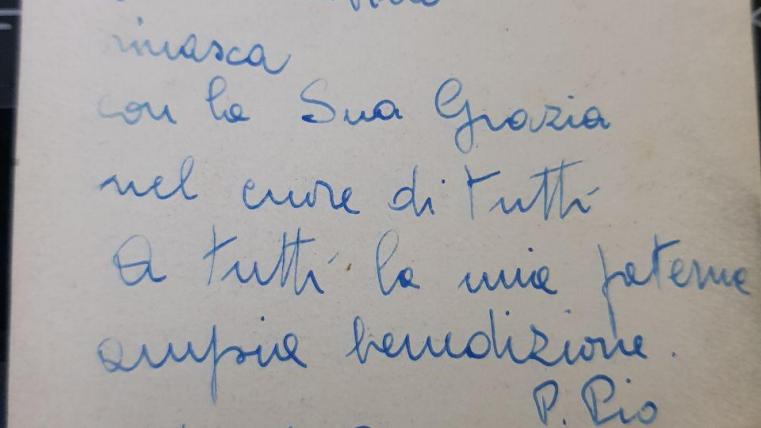 rinasca
con la Sua Grazia
nel cuore di tutti
A tutti la mia paterna
ampia benedizione.
P. Pio